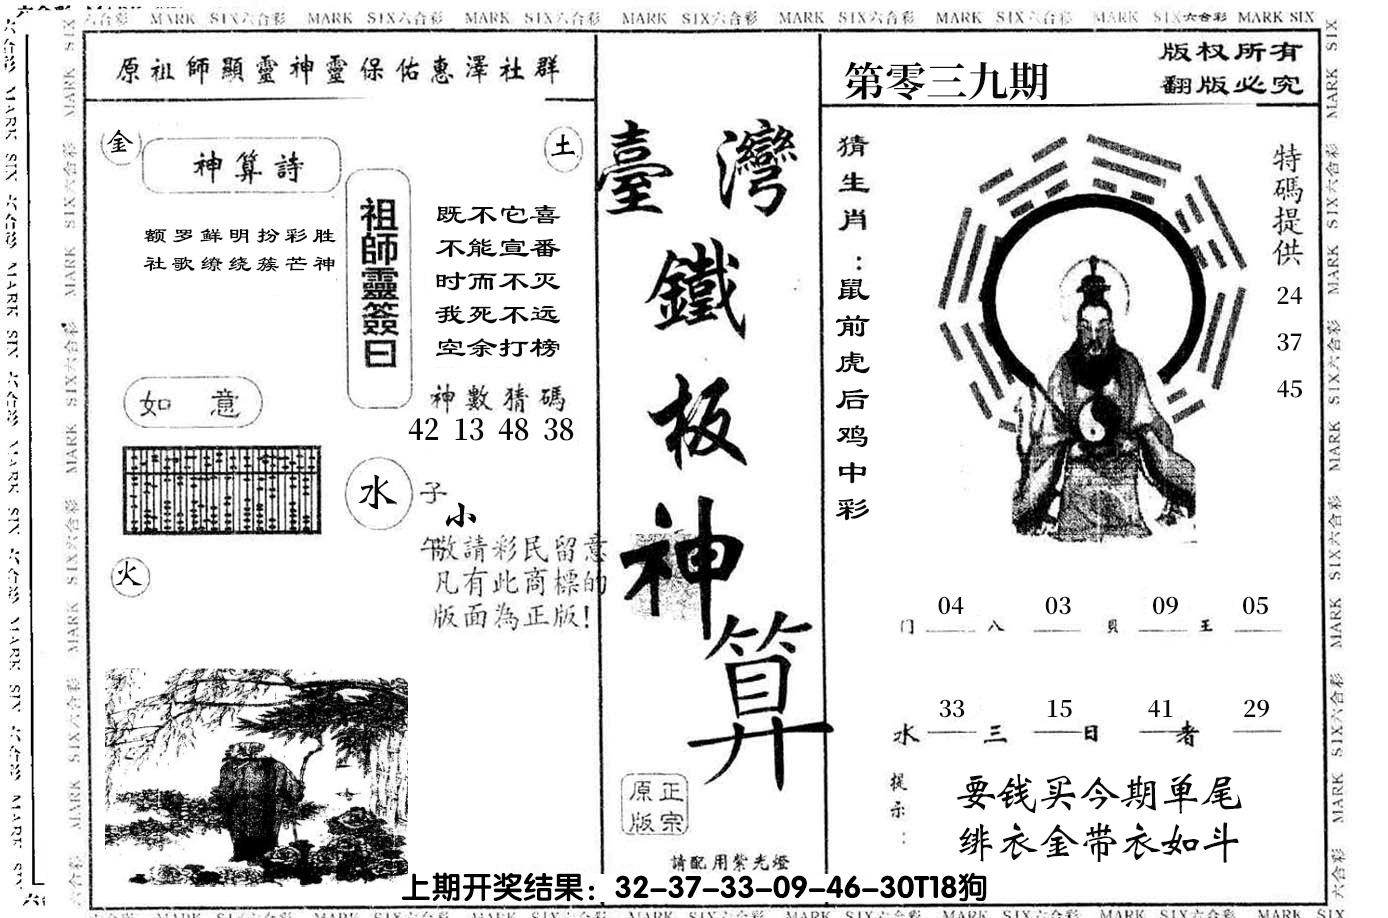 六合彩 MARK SIX六合彩 MARK SIX六合彩 MARK SIX六合彩 MARK SIX六合彩 MARK SIX六合彩 MARK SIX六合彩 MARK SIX六合彩 MARK SIX
原祖師顯靈神靈保佑惠澤社群
金
土
神算詩
额罗鲜明扮彩胜
社歌缭绕蔟芒神
祖師靈簽曰
既不它喜
不能宣番
时而不灭
我死不远
空余打榜
神數猜碼
42 13 48 38
如 意
水
子
小
午
火
敬請彩民留意
凡有此商標的
版面為正版!
臺灣
鐵
板
神
算
正宗
原版
請配用紫光燈
第零三九期
版权所有
翻版必究
猜生肖:鼠前虎后鸡中彩
特碼提供
24
37
45
门 04 八 03 貝 09 王 05
水 33 三 15 日 41 者 29
提示:
要钱买今期单尾
绯衣金带衣如斗
上期开奖结果：32-37-33-09-46-30T18狗